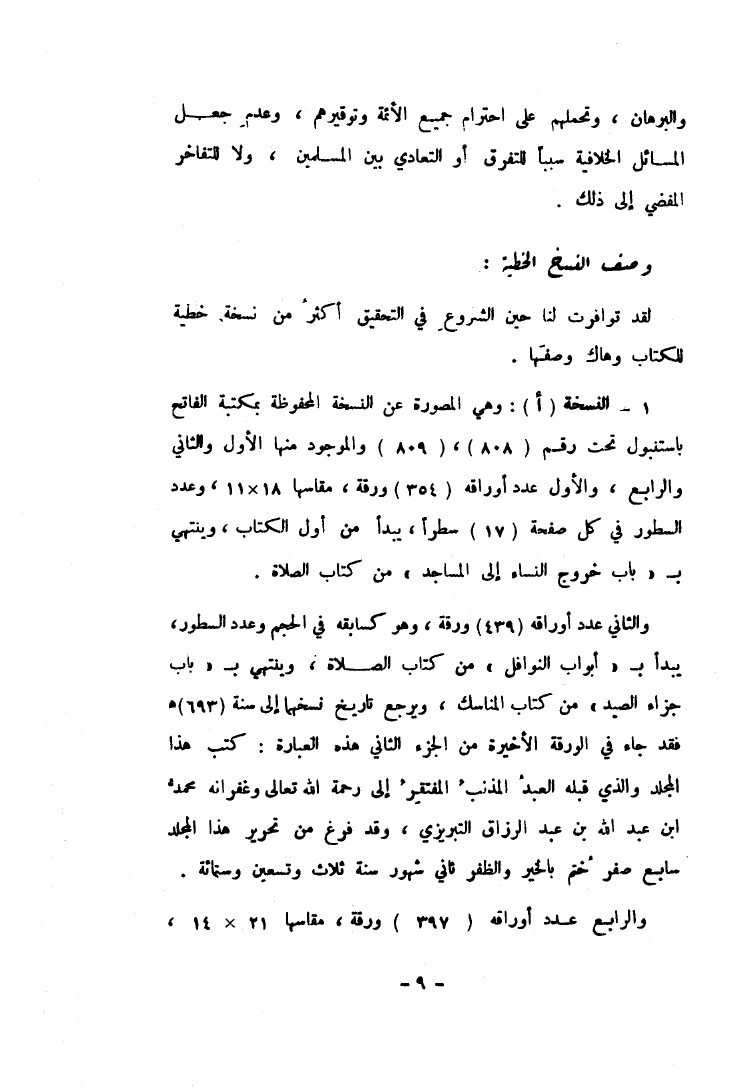 والبرهان ، وتحملهم على احترام جميع الأئمة وتوقيرهم ، وعدمِ جعـــل
المسائل الخلافية سبباً للتفرق أو التعادي بين المسلمين ، ولا للتفاخر
المفضي إلى ذلك .
وصف النسخ الخطية :
لقد توافرت لنا حين الشروعِ في التحقيق أكثرُ من نسخةٍ خطية
للكتاب وهاك وصفَها .
١ - النسخة ( أ ) : وهي المصورة عن النسخة المحفوظة بمكتبة الفاتح
باستنبول تحت رقم ( ٨٠٨ ) ، ( ٨٠٩ ) والموجود منها الأول والثاني
والرابع ، والأول عدد أوراقه ( ٣٥٤ ) ورقة ، مقاسها ١٨×١١ ، وعدد
السطور في كل صفحة ( ١٧ ) سطراً ، يبدأ من أول الكتاب ، وينتهي
بـ « باب خروج النساء إلى المساجد » من كتاب الصلاة .
والثاني عدد أوراقه (٤٣٩) ورقة ، وهو كسابقه في الحجم وعدد السطور ،
يبدأ بـ « أبواب النوافل » من كتاب الصـــلاة ، وينتهي بـ « باب
جزاء الصيد » من كتاب المناسك ، ويرجع تاريخ نسخها إلى سنة (٦٩٣)ه
فقد جاء في الورقة الأخيرة من الجزء الثاني هذه العبارة : كتب هذا
المجلد والذي قبله العبدُ المذنبُ المفتقرُ إلى رحمة الله تعالى وغفرانه محمدُ
ابن عبد الله بن عبد الرزاق التبريزي ، وقد فرغ من تحرير هذا المجلد
سابع صفر خُتم بالخير والظفر ثاني شهور سنة ثلاث وتسعين وستمائة .
والرابع عــدد أوراقه ( ٣٩٧ ) ورقة ، مقاسها ٢١ × ١٤ ،
- ٩ -